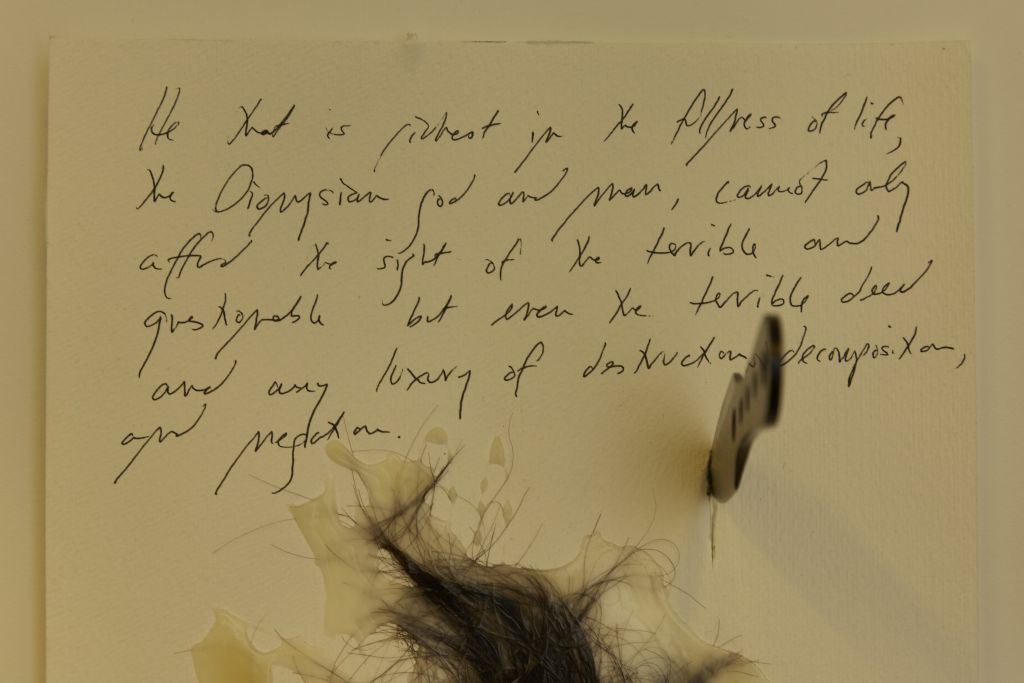 He that is richest in the fullness of life,
the Dionysian god and man, cannot only
afford the sight of the terrible and
questionable but even the terrible deed
and any luxury of destruction, decomposition,
and negation.